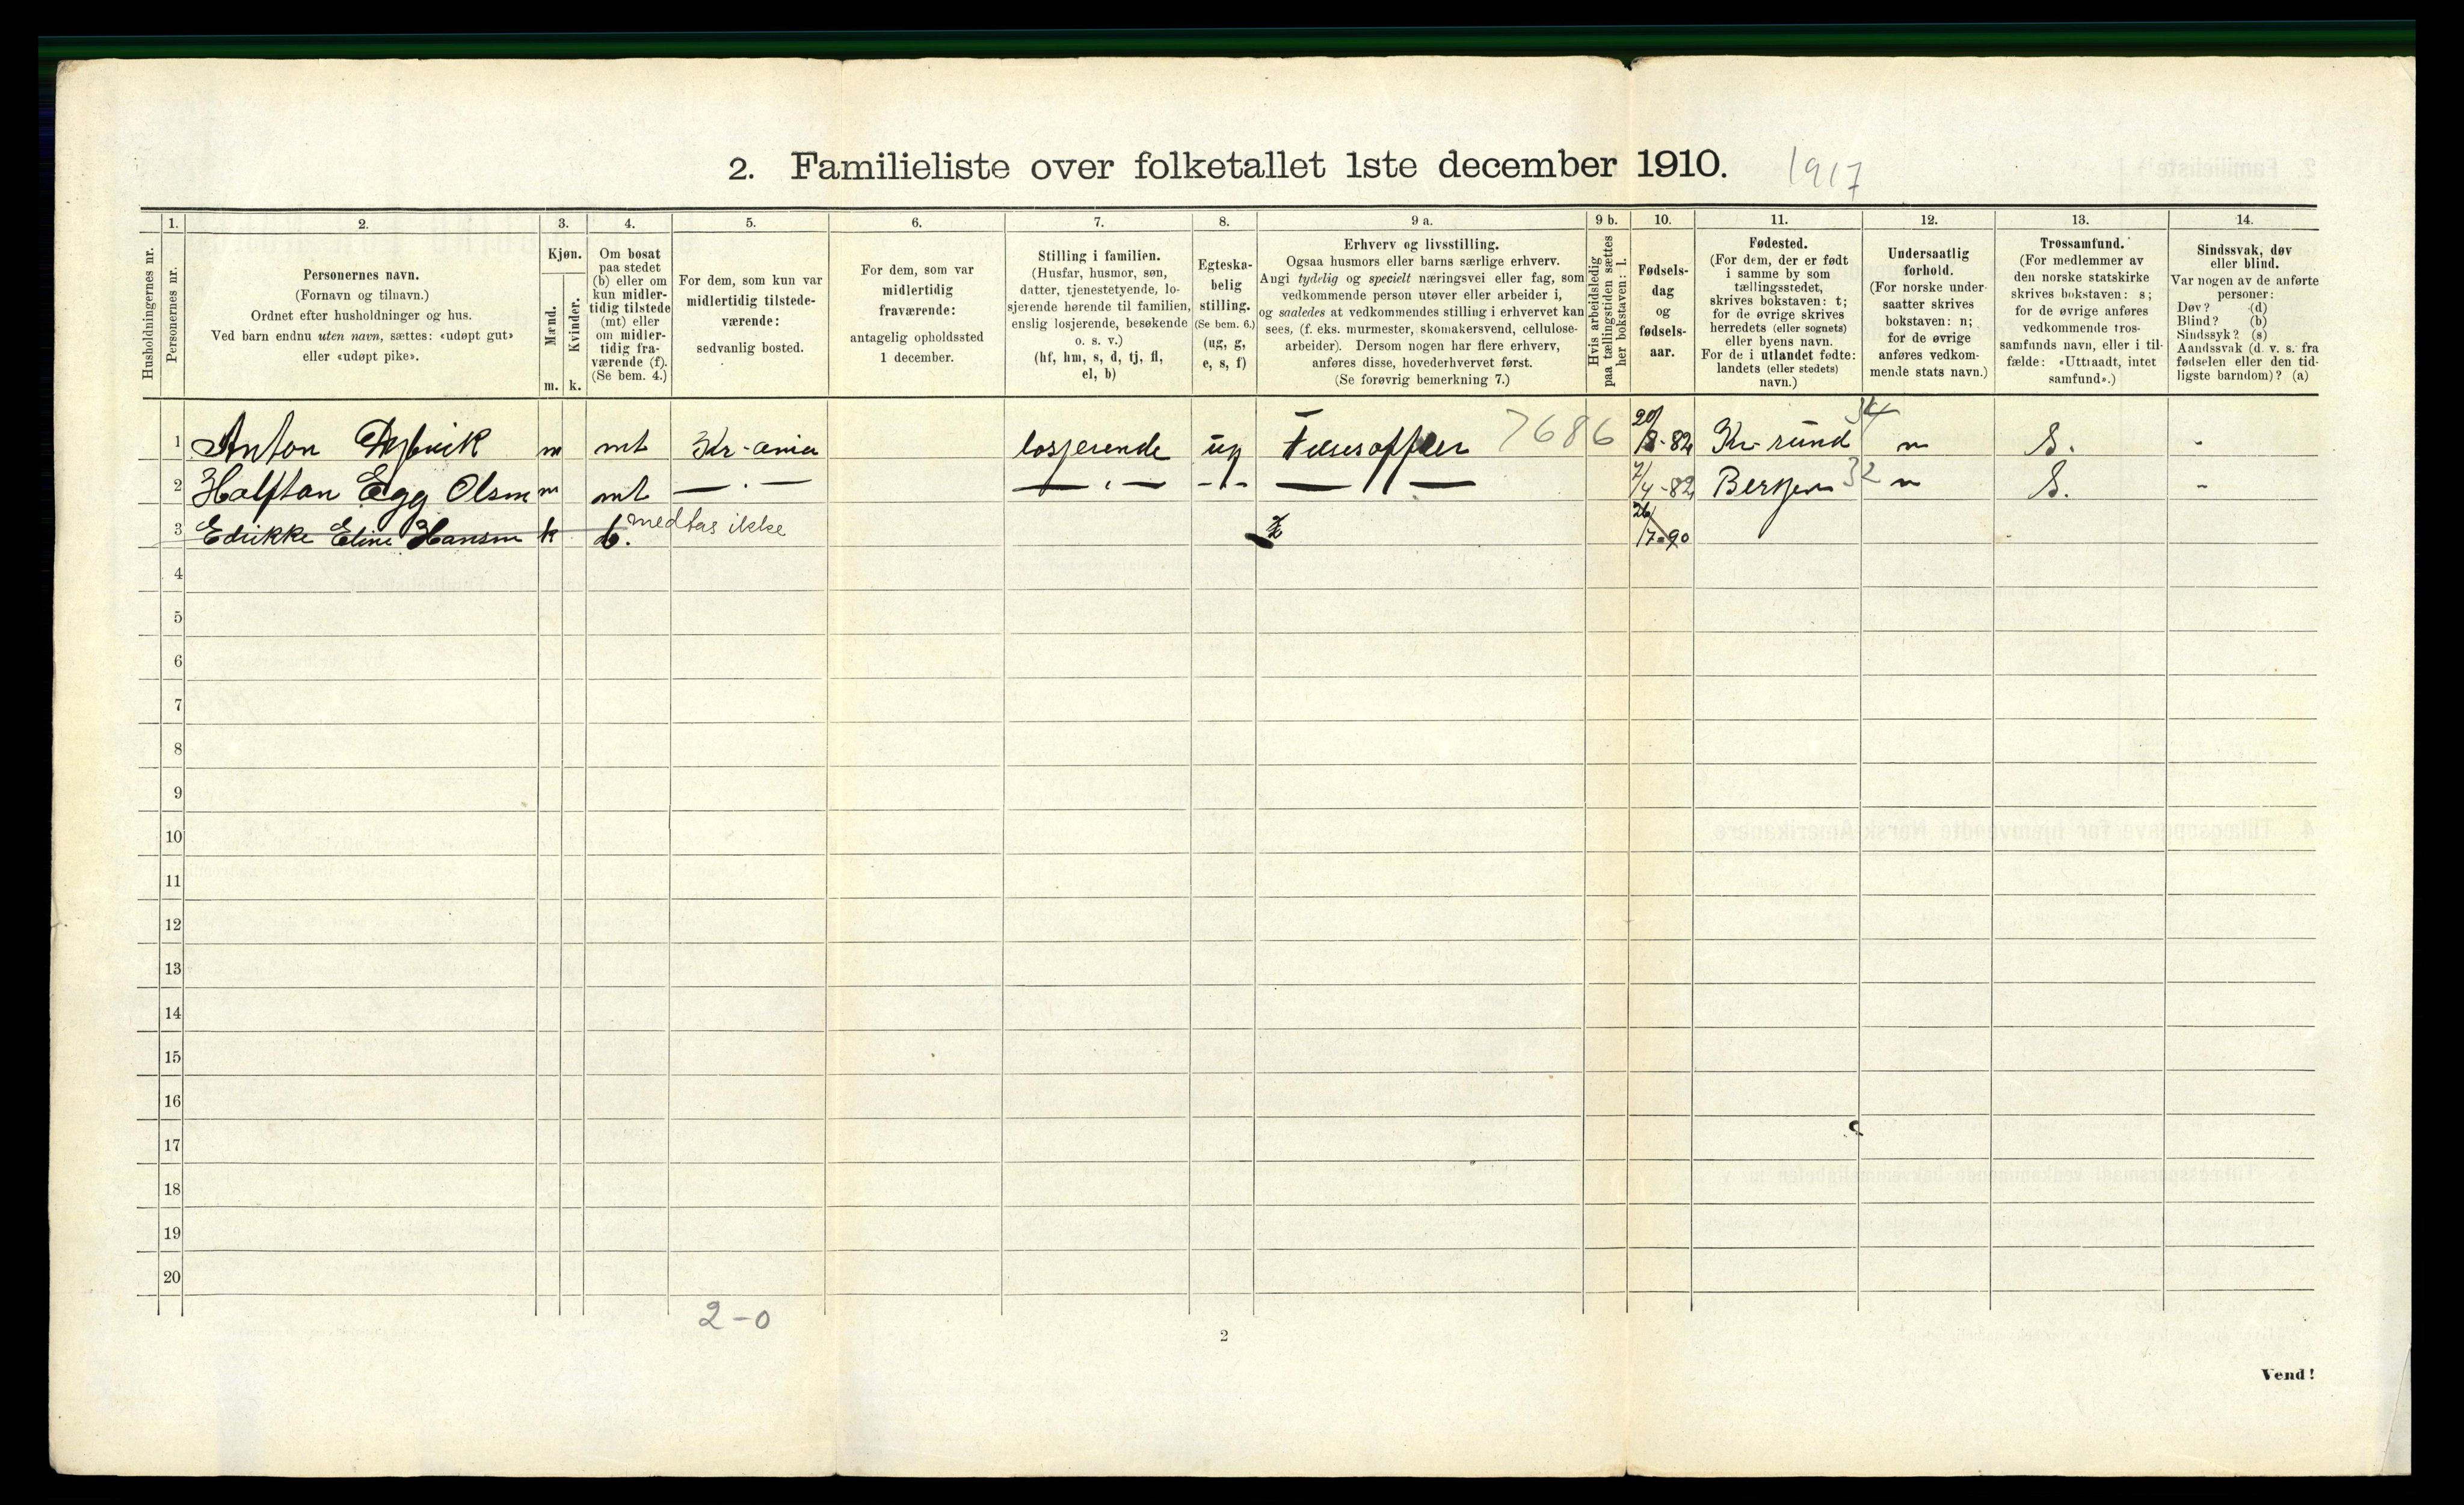 2. Familieliste over folketallet 1ste december 1910. 1917
Husholdningernes nr.
1.
Personernes nr.
2.
Personernes navn.
(Fornavn og tilnavn.)
Ordnet efter husholdninger og hus.
Ved barn endnu uten navn, sættes: «udøpt gut»
eller «udøpt pike».
3.
Kjøn.
Mænd.
Kvinder.
m. k.
4.
Om bosat
paa stedet
(b) eller om
kun midler-
tidig tilstede
(mt) eller
om midler-
tidig fra-
værende (f).
(Se bem. 4.)
5.
For dem, som kun var
midlertidig tilstede-
værende:
sedvanlig bosted.
6.
For dem, som var
midlertidig
fraværende:
antagelig opholdssted
1 december.
7.
Stilling i familien.
(Husfar, husmor, søn,
datter, tjenestetyende, lo-
sjerende hørende til familien,
enslig losjerende, besøkende
o. s. v.)
(hf, hm, s, d, tj, fl,
el, b)
8.
Egteska-
belig
stilling.
(Se bem. 6.)
(ug, g,
e, s, f)
9 a.
Erhverv og livsstilling.
Ogsaa husmors eller barns særlige erhverv.
Angi tydelig og specielt næringsvei eller fag, som
vedkommende person utøver eller arbeider i,
og saaledes at vedkommendes stilling i erhvervet kan
sees, (f. eks. murmester, skomakersvend, cellulose-
arbeider). Dersom nogen har flere erhverv,
anføres disse, hovederhvervet først.
(Se forøvrig bemerkning 7.)
9 b.
Hvis arbeidsledig
paa tællingstiden sættes
her bokstaven: l.
10.
Fødsels-
dag
og
fødsels-
aar.
11.
Fødested.
(For dem, der er født
i samme by som
tællingsstedet,
skrives bokstaven: t;
for de øvrige skrives
herredets (eller sognets)
eller byens navn.
For de i utlandet fødte:
landets (eller stedets)
navn.)
12.
Undersaatlig
forhold.
(For norske under-
saatter skrives
bokstaven: n;
for de øvrige
anføres vedkom-
mende stats navn.)
13.
Trossamfund.
(For medlemmer av
den norske statskirke
skrives bokstaven: s;
for de øvrige anføres
vedkommende tros-
samfunds navn, eller i til-
fælde: «Uttraadt, intet
samfund».)
14.
Sindssvak, døv
eller blind.
Var nogen av de anførte
personer:
Døv? (d)
Blind? (b)
Sindssyk? (s)
Aandssvak (d. v. s. fra
fødselen eller den tid-
ligste barndom)? (a)
1 Anton m mt Kr-ania losjerende ug 7686 20/8-82 Kr-sund 34 n S. -
2 Halftan Egg Olsen m mt — . — — . — - . - — " — 7/4-82 Bergen 32 n S. -
3 Edrikke Eline Hansen k b. medtas ikke 26/7-90
4
5
6
7
8
9
10
11
12
13
14
15
16
17
18
19
20
2-0
2
Vend!